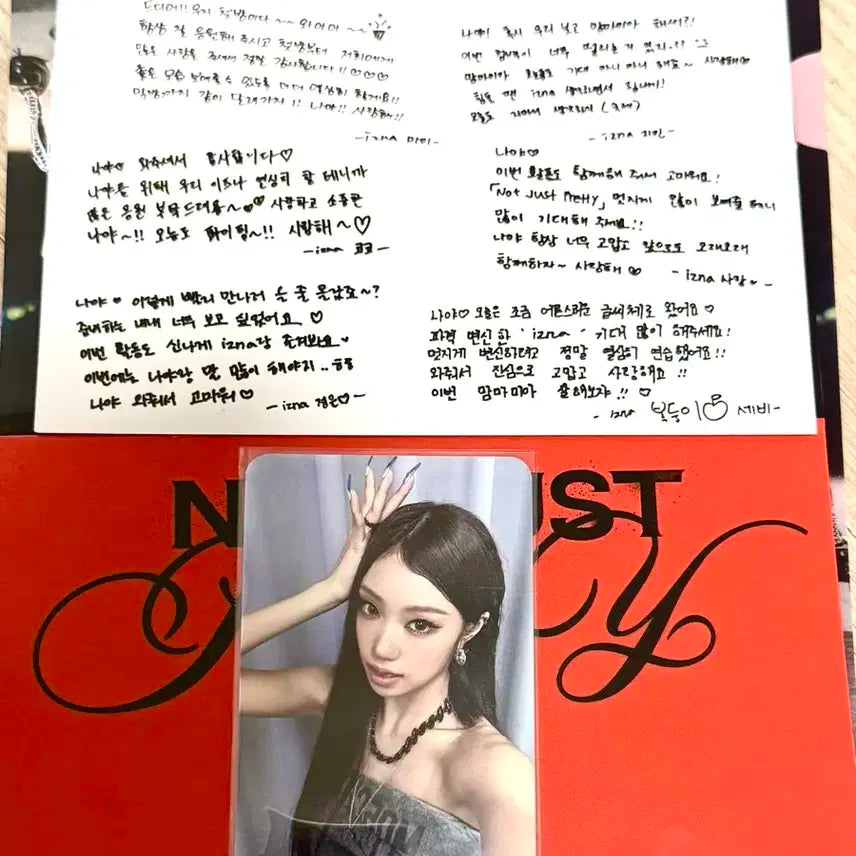 드디어!! 우리 첫방이다 ~~ 와아아 ~~
항상 잘 응원해 주시고 첫방부터 저희에게
많은 사랑을 주셔서 정말 감사합니다!! ♡♡♡
좋은 모습 보여줄 수 있도록 더 더 열심히 할게요!!
막방까지 같이 달려가자!! 나야!! 사랑해!!
-izna 마이-
나야! 혹시 우리 보고 맘마미아 해써?!
이번 컴백이 너무 떨리는거 있지..??
맘마미아 활동도 기대 마니 마니 해요~ 사랑해♡
힘들 땐 izna 생각하면서 힘내기!
오늘도 지켜서
-izna 지민-
나야♡ 와주셔서 감사합니다♡
나야를 위해 우리 이즈나 열심히 할 테니까
많은 응원 부탁드려용~♡♡ 사랑하고 소중한
나야~!! 오늘도 파이팅~!! 사랑해~♡
-izna 코코-
나야♡
이번 활동도 함께해 주셔 고마워요!
「Not Just Pretty」 멋지게 많이 보여줄 테니
많이 기대해 주세요!!
나야 항상 너무 고맙고 앞으로도 오래오래
함께하자~ 사랑해♡
-izna 사랑-
나야♡ 이렇게 빨리 만나러 온 줄 몰랐죠~?
준비하는 내내 너무 보고 싶었어요 ♡
이번 활동도 신나게 izna랑 즐겨봐요♡
이번에는 나야랑 말 많이 해야지..ㅎㅎ
나야 와줘서 고마워♡
-izna 정은♡-
나야♡ 오늘은 조금 어른스러운 글씨체로 왔어요♡
파격 변신한 'izna' 기대 많이 해주세요!
멋지게 변신하려고 정말 열심히 연습했어요!!
와줘서 진심으로 고맙고 사랑해요!!
이번 맘마미아 잘해보자!! ♡
-izna 복둥이 세비-